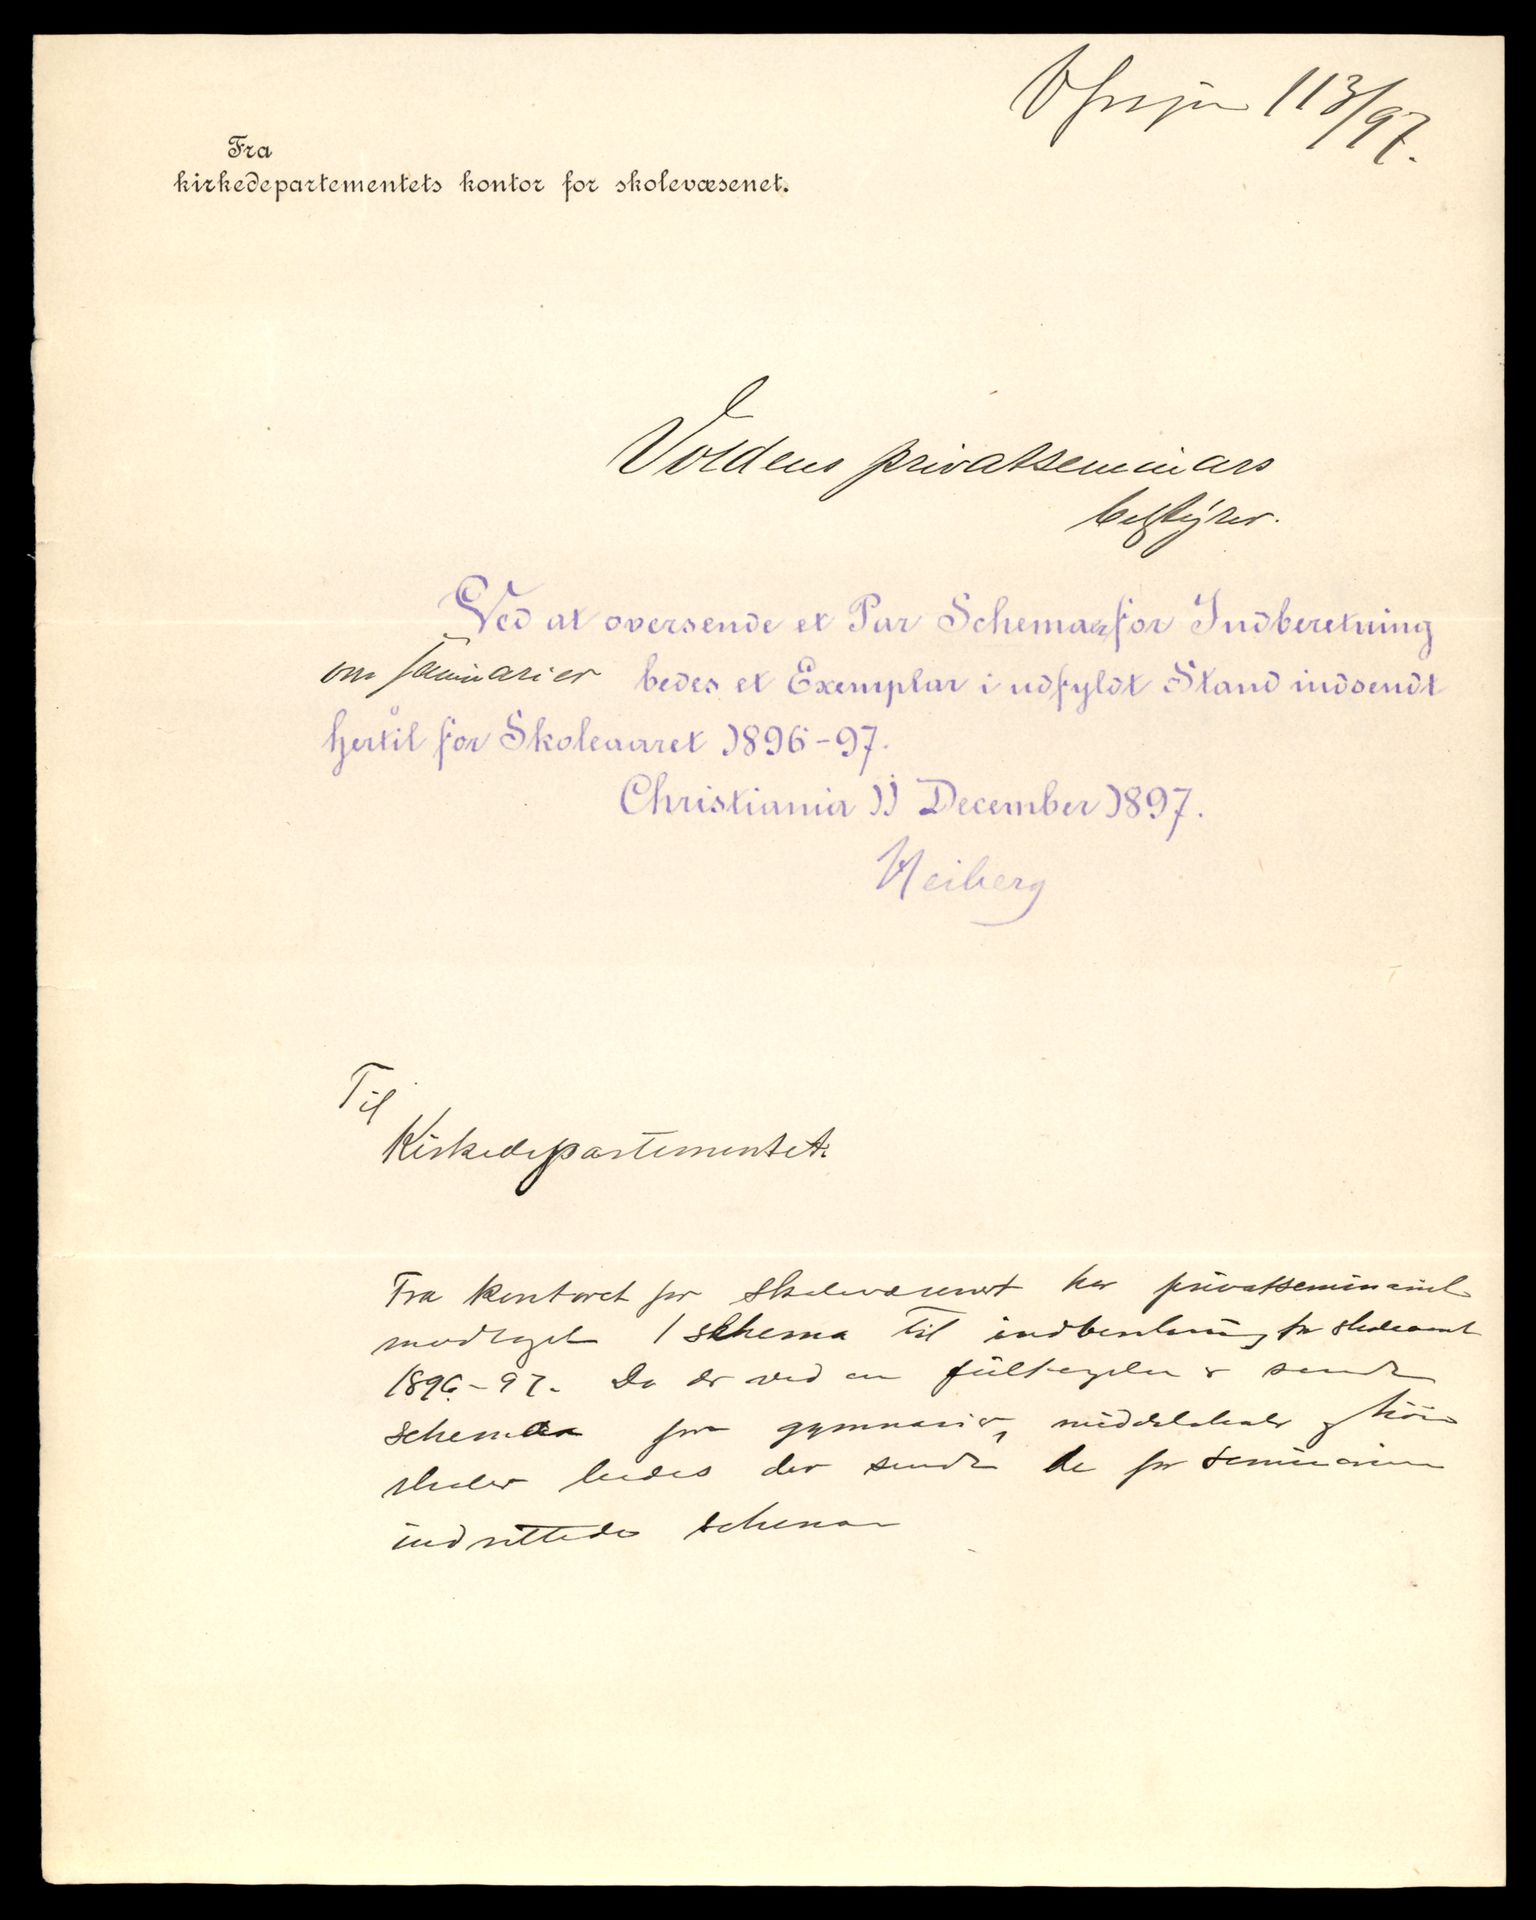 113/97.
Fra
kirkedepartementets kontor for skolevæsenet.
Voldens privatseminars
bestyrer.
Ved at oversende et Par Schemaer for Indberetning
om seminarier bedes et Exemplar i udfyldt Stand indsendt
hertil for Skoleaaret 1896-97.
Christiania 11 December 1897.
Heiberg
Til
Kirkedepartementet.
Fra kontoret for skolevæsenet har privatseminariet
modtaget 1 schema til indberetning for skoleaaret
1896-97. Da der ved en feiltagelse er sendt
schemaer for gymnasier, middelskoler og høiere
skoler bedes der sendt de for seminarier
indrettede schemaer